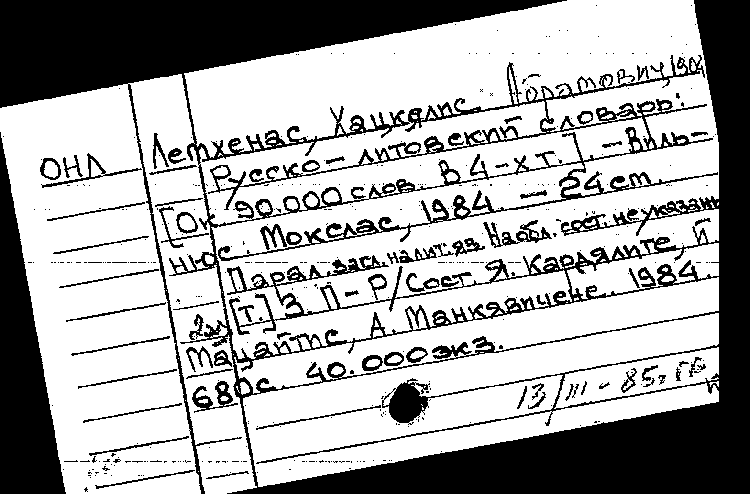 ОНЛ
Лемхенас, Хацкялис Абрамович, 1904
Русско-литовский словарь:
[Ок. 90.000 слов. В 4-х т.]. - Виль-
нюс. Мокслас, 1984. - 24 cm.
Парал. загл. на лит. яз. На обл. сост. не указаны
2эк [т.] 3. П-Р / Сост. Я. Кардялите, Й.
Мацайтис, А. Манкявичене. 1984.
680с. 40.000 экз.
13/III-85г